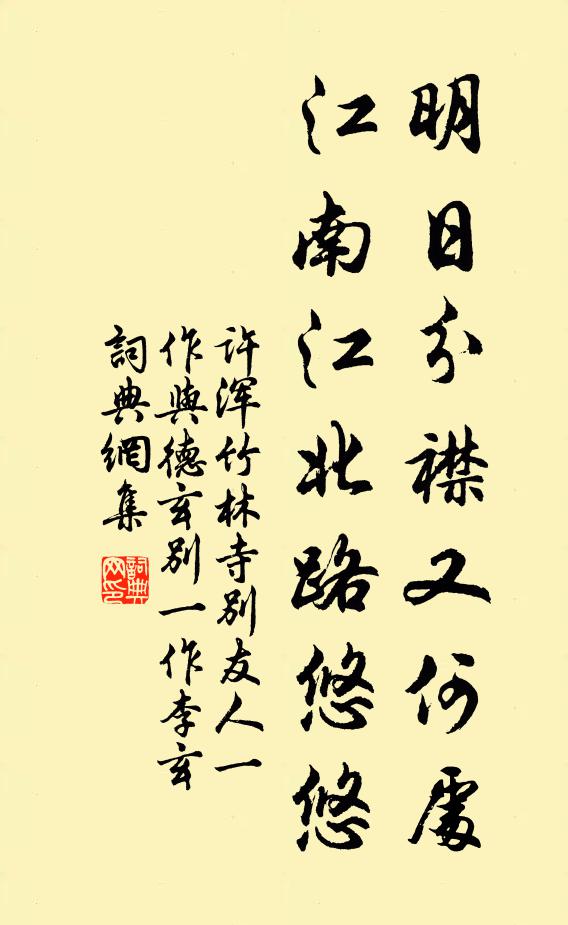 明日分襟又何處
江南江北路悠悠
許渾竹林寺别友人一
作與德玄别一作李玄
詞典網集
詞典網印